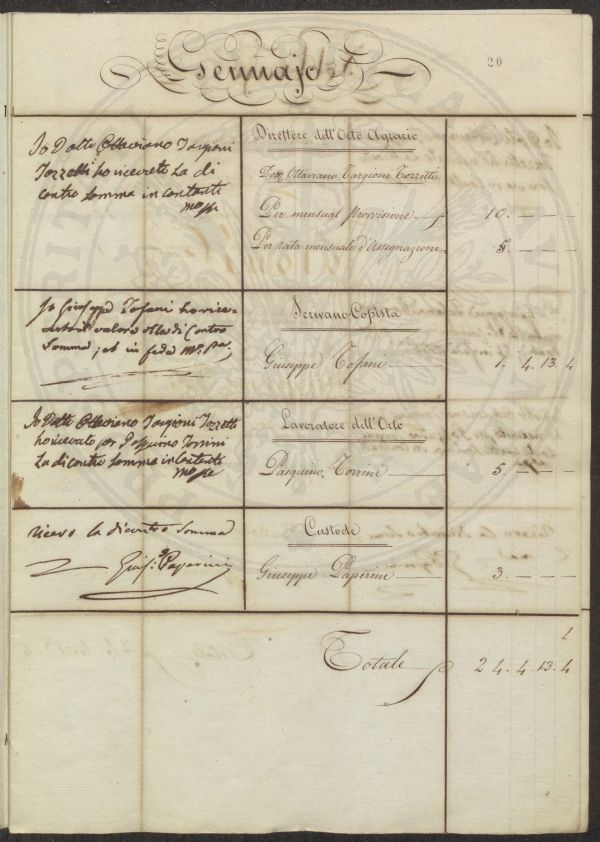 20
Gennajo
Io Dottr Ottaviano Targioni
Tozzetti ho ricevuto la di
contro somma in contanti
mo ppe
Direttore dell'Orto Agrario
Dottr Ottaviano Targioni Tozzetti
Per mensual Provvisione 10. — — —
Per rata mensuale d'Assegnazione 5. — — —
Io Giuseppe Tofani ho rice=
vuto il valore della di Contro
Somma, et in fede Mo. Pa.
Scrivano Copista
Giuseppe Tofani 1. 4. 13. 4
Io Dottr Ottaviano Targioni Tozzetti
ho ricevuto per Pasquino Torrini
la di contro somma in Contanti
mo ppe
Lavoratore dell'Orto
Pasquino Torrini 5. — — —
Ricevo la dicontro somma
Gius. Paperini
Custode
Giuseppe Paperini 3. — — —
Totale 24. 4. 13. 4